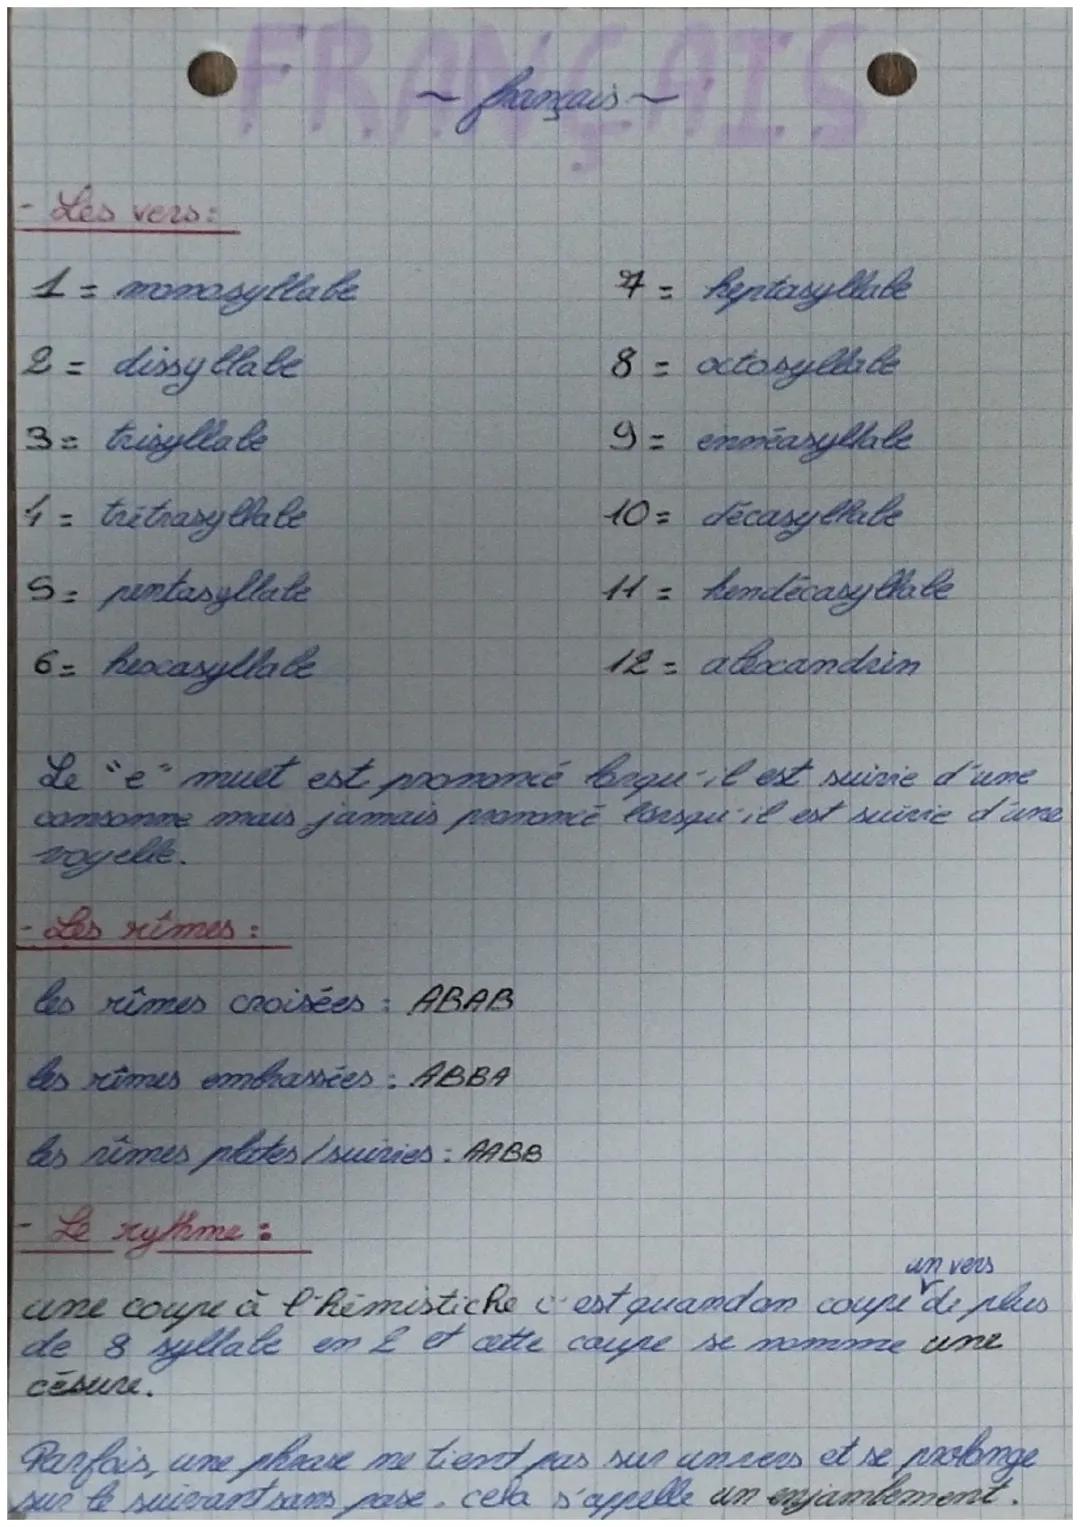 FRANÇAIS
~ français ~
- Les vers :
1 = monosyllabe
7 = heptasyllabe
2 = dissyllabe
8 = octosyllabe
3 = trisyllabe
9 = ennéasyllabe
4 = trétrasyllabe
10 = décasyllabe
5 = pentasyllabe
11 = hendécasyllabe
6 = hexasyllabe
12 = alexandrin
Le "e" muet est prononcé lorqu'il est suivie d'une
consonne mais jamais prononcé lorsqu'il est suivie d'une
voyelle.
- Les rimes :
les rîmes croisées : ABAB
les rîmes embrassées : ABBA
les rîmes plates / suivies : AABB
- Le rythme :
un vers
une coupe à l'hémistiche c'est quand on coupe de plus
de 8 syllabe en 2 et cette coupe se nomme une
césure.
Parfois, une phrase ne tient pas sur un vers et se prolonge
sur le suivant sans pase. cela s'appelle un enjambement.